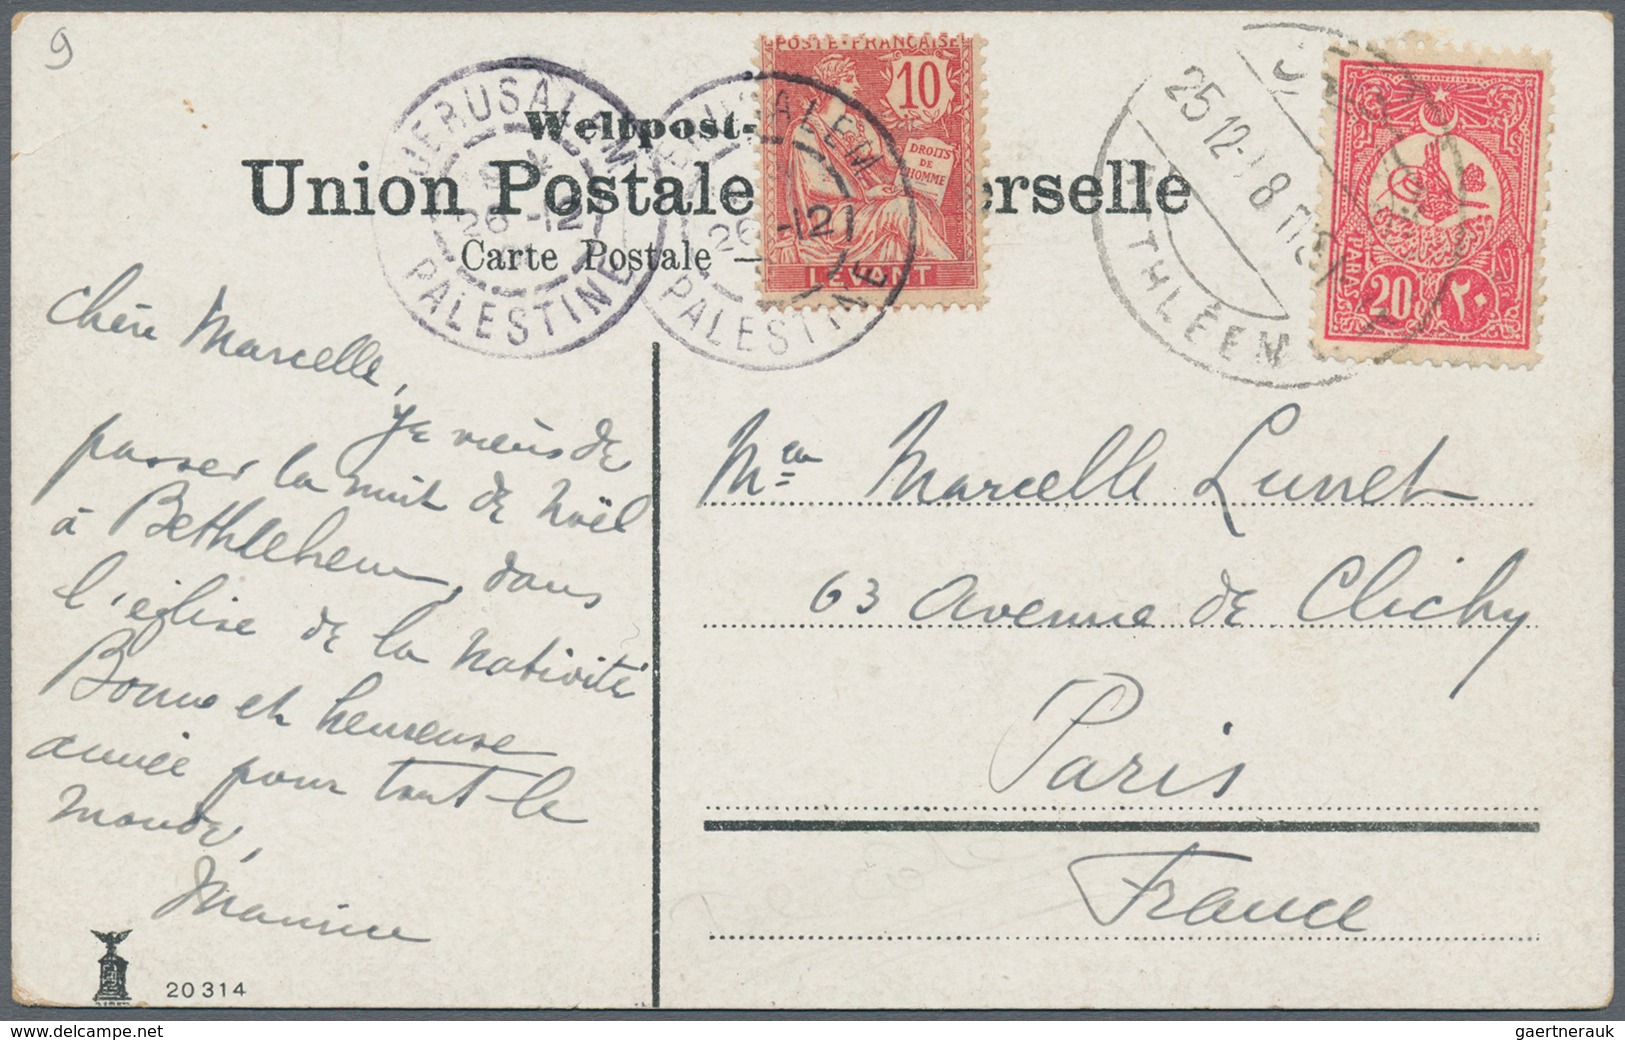 9
Weltpost-
Union Postale erselle
Carte Postale —
JERUSALEM
26 -12
PALESTINE
JERUSALEM
26 -12
PALESTINE
POSTE·FRANCAISE
10
DROITS
DE
L'HOMME
LEVANT
25 12
BETHLÉEM
PARAS
20
٢٠
Chère Marcelle,
je viens de
passer la nuit de Noël
à Bethlehem, dans
l'église de la Nativité
Bonne et heureuse
année pour tout le
monde,
Maurice
Marcelle Lunet
63 avenue de Clichy
Paris
France
20314
gaertnerauk